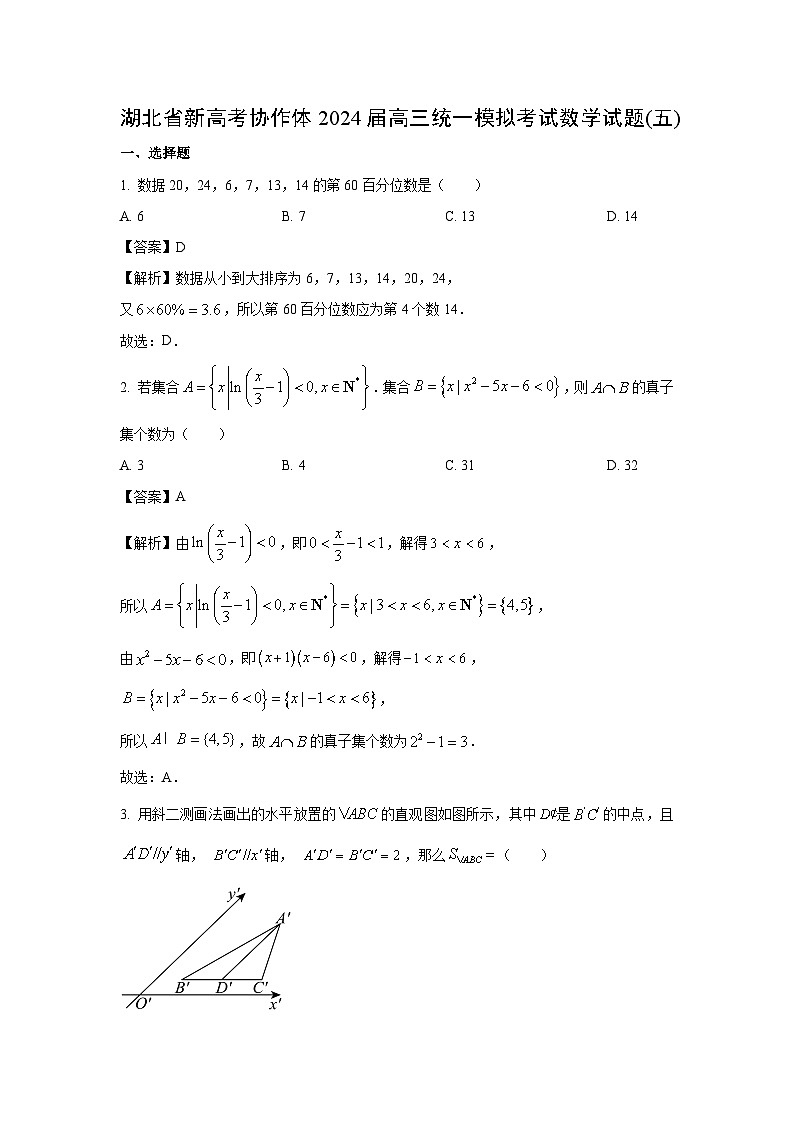 湖北省新高考协作体 2024 届高三统一模拟考试数学试题(五)
一、选择题
1. 数据 20，24，6，7，13，14 的第 60 百分位数是（　　）
A. 6　B. 7　C. 13　D. 14
【答案】D
【解析】数据从小到大排序为 6，7，13，14，20，24，
又 6×60% = 3.6，所以第 60 百分位数应为第 4 个数 14．
故选：D．
2. 若集合 A = {x | ln(x/3 − 1) < 0, x ∈ N*}．集合 B = {x | x² − 5x − 6 < 0}，则 A∩B 的真子
集个数为（　　）
A. 3　B. 4　C. 31　D. 32
【答案】A
【解析】由 ln(x/3 − 1) < 0，即 0 < x/3 − 1 < 1，解得 3 < x < 6，
所以 A = {x | ln(x/3 − 1) < 0, x ∈ N*} = {x | 3 < x < 6, x ∈ N*} = {4,5}，
由 x² − 5x − 6 < 0，即 (x+1)(x−6) < 0，解得 −1 < x < 6，
B = {x | x² − 5x − 6 < 0} = {x | −1 < x < 6}，
所以 A | B = {4,5}，故 A∩B 的真子集个数为 2² − 1 = 3．
故选：A．
3. 用斜二测画法画出的水平放置的 √ABC 的直观图如图所示，其中 D¢是 B′C′ 的中点，且
A′D′//y′ 轴， B′C′//x′ 轴， A′D′ = B′C′ = 2，那么 S√ABC =（　　）
y′
A′
B′ D′ C′
O′ x′